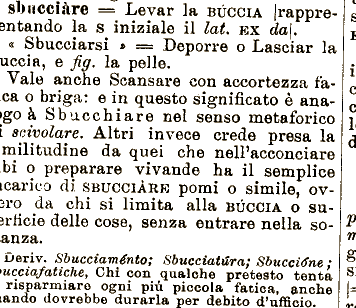 sbucciàre = Levar la BÚCCIA |rappre-
entando la s iniziale il lat. EX da|.
« Sbucciarsi » = Deporre o Lasciar la
uccia, e fig. la pelle.
Vale anche Scansare con accortezza fa-
ica o briga: e in questo significato è ana-
ogo à Sbucchiare nel senso metaforico
i scivolare. Altri invece crede presa la
militudine da quei che nell'acconciare
ibi o preparare vivande ha il semplice
ncarico di SBUCCIÀRE pomi o simile, ov-
ero da chi si limita alla BÚCCIA o su-
erficie delle cose, senza entrare nella so-
anza.
Deriv. Sbucciaménto; Sbucciatúra; Sbuccióne;
bucciafatiche, Chi con qualche pretesto tenta
i risparmiare ogni più piccola fatica, anche
uando dovrebbe durarla per debito d'uficio.